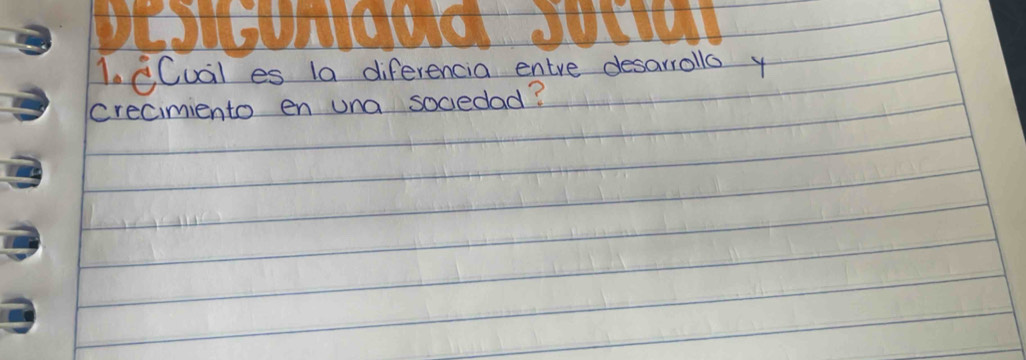 DESIGUALDAD SOCIAL
1. ¿Cuál es la diferencia entre desarrollo y
crecimiento en una sociedad?